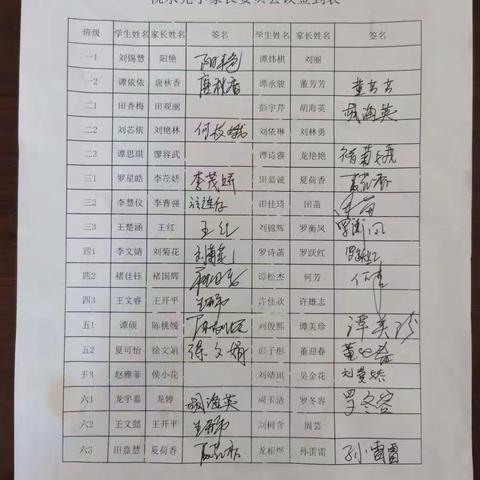 家长委员会会议签到表
班级 学生姓名 家长姓名 签名 学生姓名 家长姓名 签名
一1 刘锡慧 阳艳 阳艳 谭炜棋 刘丽
一2 谭依依 唐秋香 唐秋香 谭承骏 董芳芳 董芳芳
二1 田香梅 田观丽 彭宇芹 胡海英 胡海英
二2 刘芯依 刘艳林 刘依琳 刘林勇
二3 谭思琪 廖容武 谭诗灏 龙艳艳
三1 罗星皓 李茂妍 李茂妍 田嘉诚 夏荷香 夏荷香
三2 李慧仪 李曹强 田佳琦 田苗
三3 王楚涵 王红 王红 刘锦辉 罗衡凤 罗衡凤
四1 李文婧 刘菊花 罗诗菡 罗跃红 罗跃红
四2 褚佳钰 褚国辉 谭松杰 何芳
四3 王文睿 王开平 许佳欢 许雄志
五1 谭硕 陈桃媛 刘俊熙 谭美珍 谭美珍
五2 夏可怡 徐文娟 徐文娟 彭子彤 董迎春
五3 赵雅菲 侯小花 刘靖琪 吴金花
六1 龙宇嘉 龙婷 胡海英 周玉洁 罗冬容 罗冬容
六2 王文懿 王开平 刘柯含 周芸
六3 田嘉慧 夏荷香 龙相熠 孙雷雷 孙雷雷